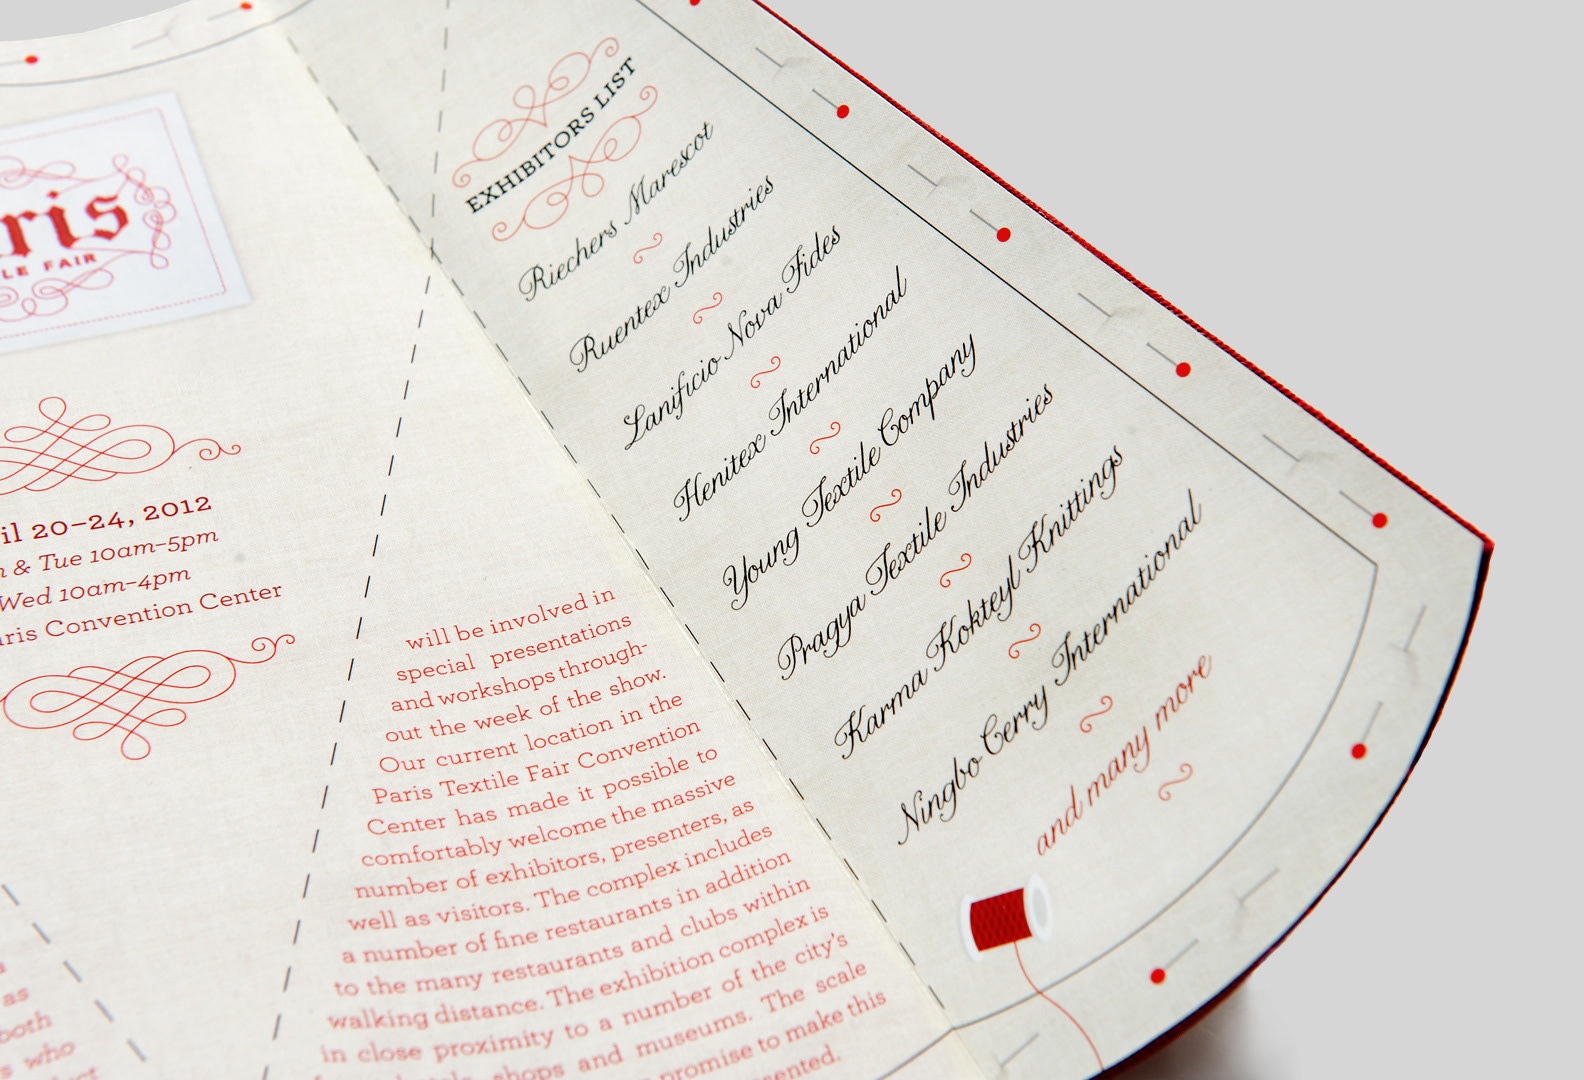 ris
LE FAIR
il 20–24, 2012
& Tue 10am–5pm
Wed 10am–4pm
ris Convention Center
as
both
who
will be involved in
special presentations
and workshops through-
out the week of the show.
Our current location in the
Paris Textile Fair Convention
Center has made it possible to
comfortably welcome the massive
number of exhibitors, presenters, as
well as visitors. The complex includes
a number of fine restaurants in addition
to the many restaurants and clubs within
walking distance. The exhibition complex is
in close proximity to a number of the city's
shops and museums. The scale
promise to make this
EXHIBITORS LIST
Riechers Marescot
Ruentex Industries
Lanificio Nova Fides
Henitex International
Young Textile Company
Pragya Textile Industries
Karma Kokteyl Knittings
Ningbo Cerry International
and many more